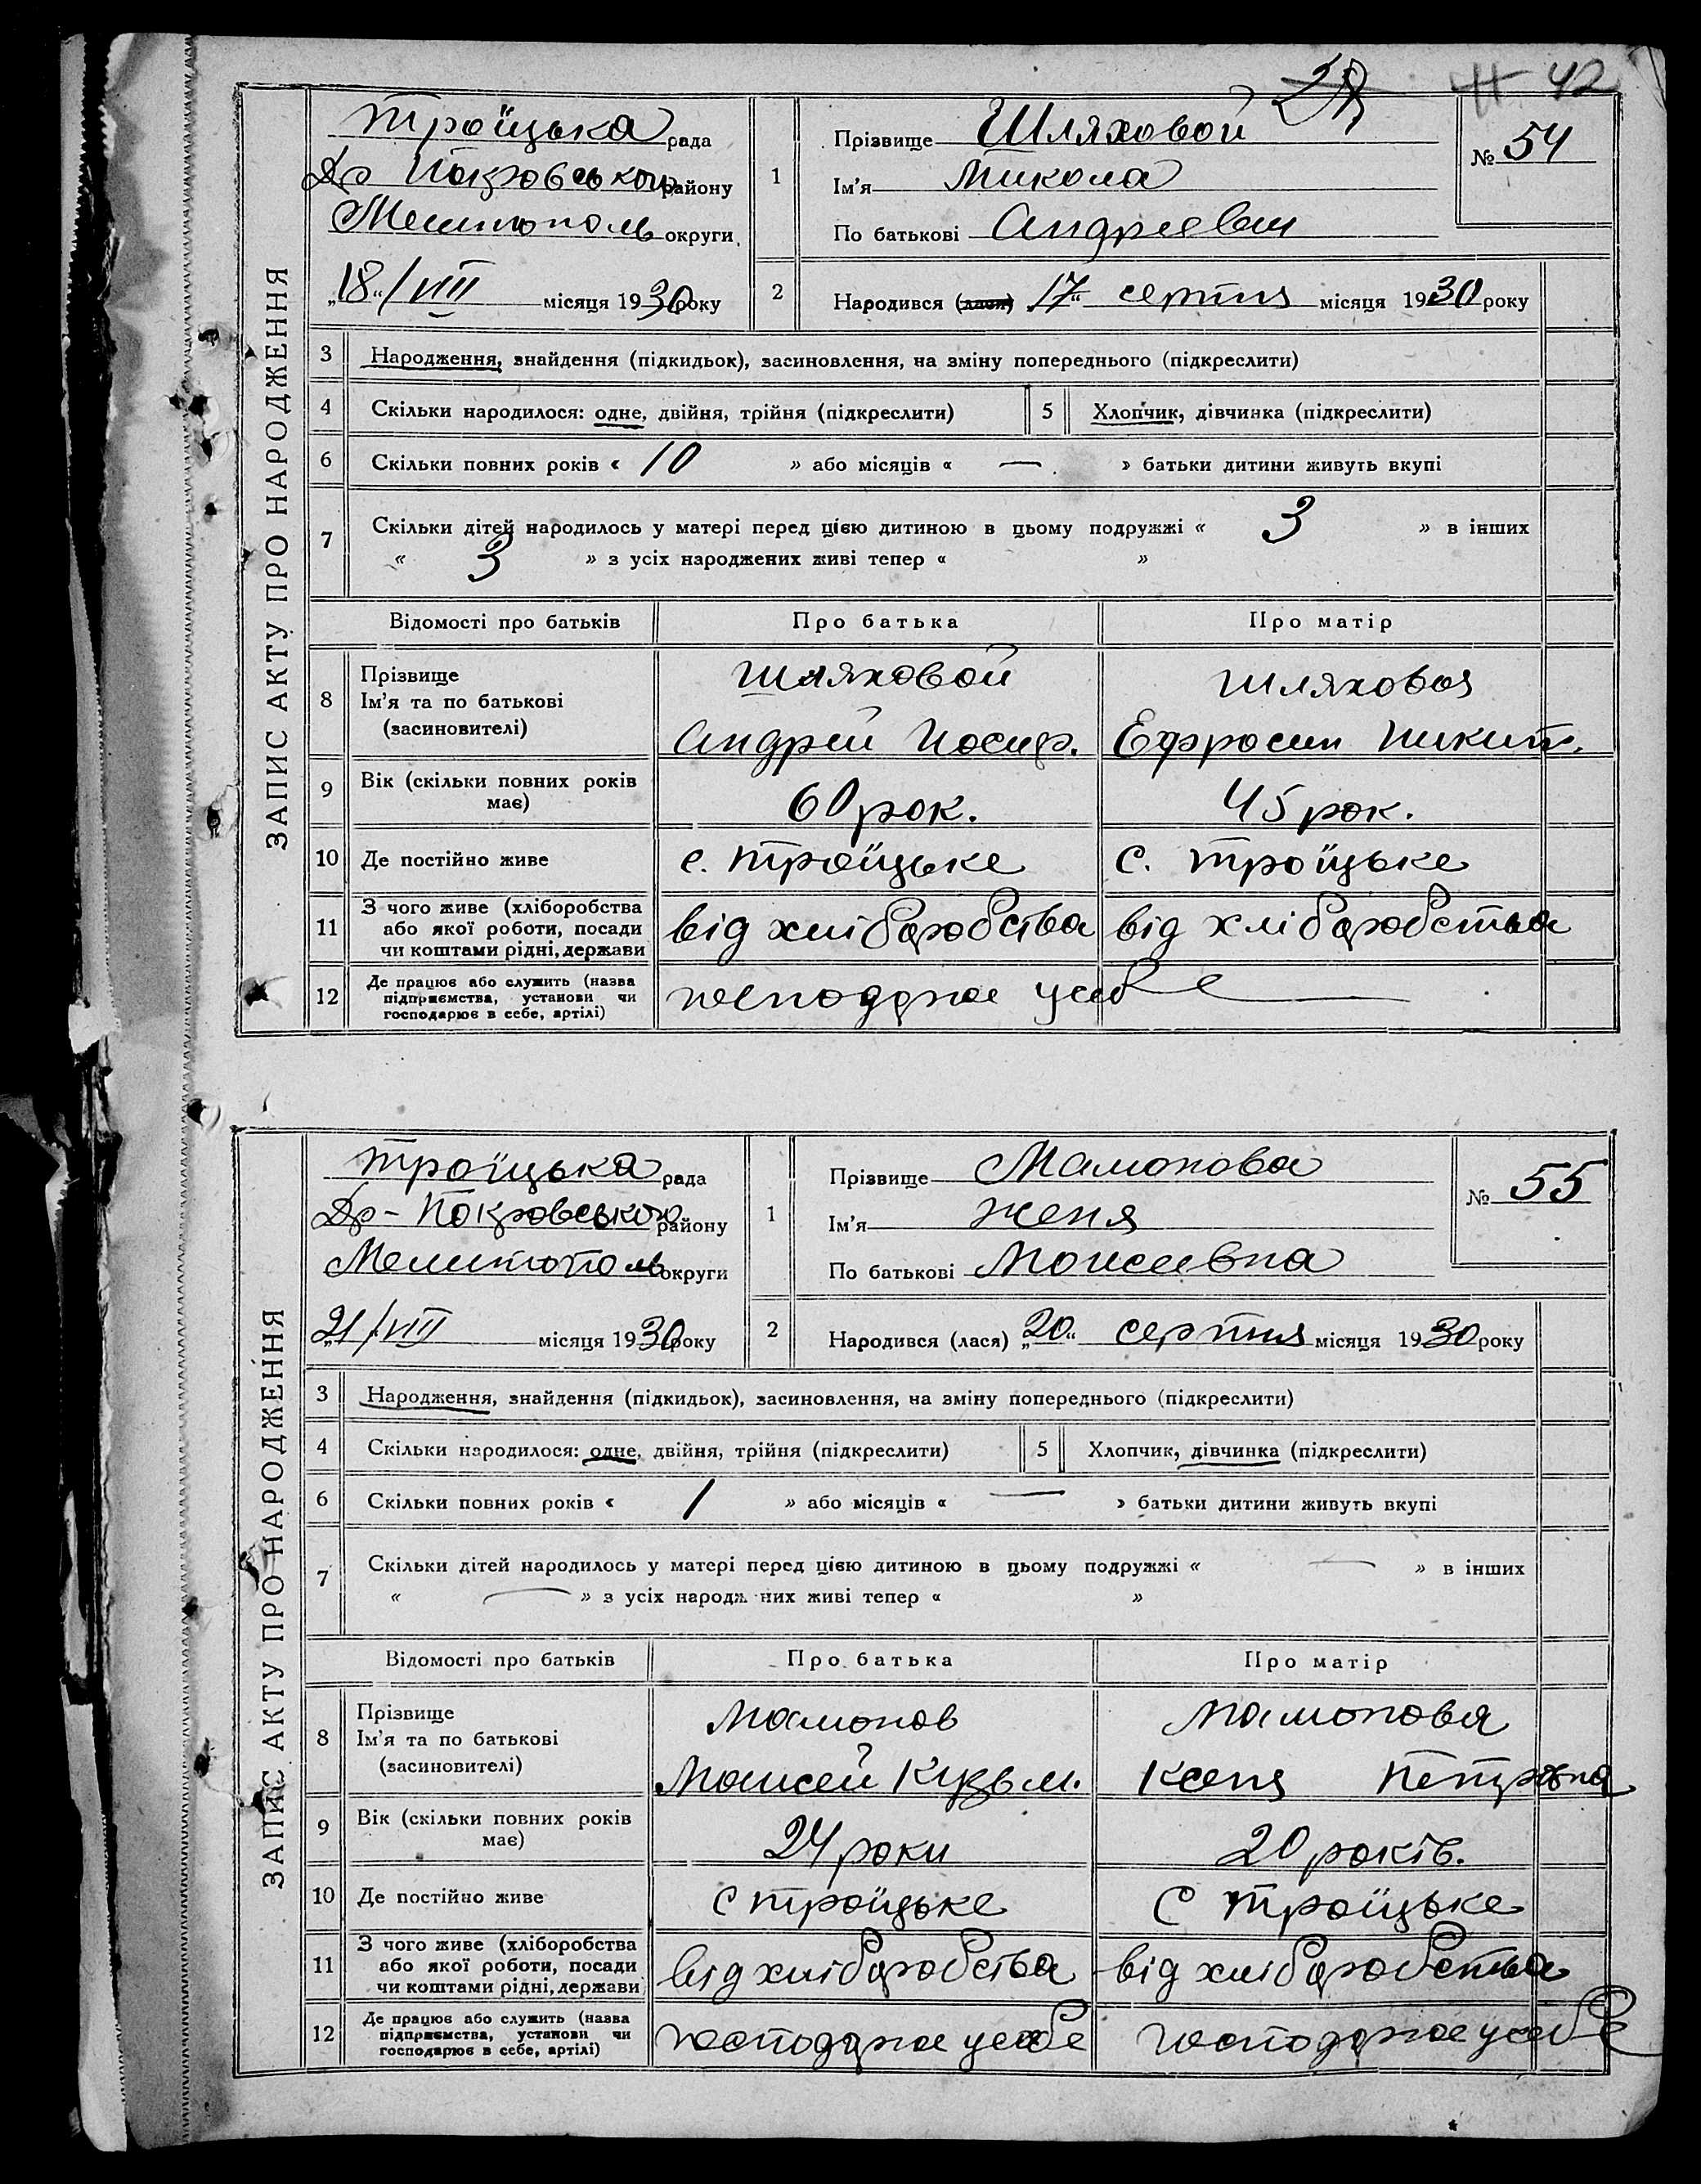 42
ЗАПИС АКТУ ПРО НАРОДЖЕННЯ
Троїцька рада
Др Покровського району
Мелитополь округи
„18“/VIII місяця 1930 року
1
Прізвище Шляховой
Ім'я Микола
По батькові Андреевич
№ 54
2
Народився (лася) „17“ серпня місяця 1930 року
3 Народження, знайдення (підкидьок), засиновлення, на зміну попереднього (підкреслити)
4 Скільки народилося: одне, двійня, трійня (підкреслити) 5 Хлопчик, дівчинка (підкреслити)
6 Скільки повних років « 10 » або місяців « — » батьки дитини живуть вкупі
7 Скільки дітей народилось у матері перед цією дитиною в цьому подружжі « 3 » в інших
« 3 » з усіх народжених живі тепер « »
Відомості про батьків Про батька Про матір
8 Прізвище
Ім'я та по батькові
(засиновителі)
Шляховой
Андрей Иосиф.
Шляховоя
Ефросин Никит.
9 Вік (скільки повних років
має)
60 рок. 45 рок.
10 Де постійно живе с. Троїцьке с. Троїцьке
11 З чого живе (хліборобства
або якої роботи, посади
чи коштами рідні, держави
від хліборобства від хліборобства
12 Де працює або служить (назва
підприємства, установи чи
господарює в себе, артілі)
господарює у себе
ЗАПИС АКТУ ПРО НАРОДЖЕННЯ
Троїцька рада
Др-Покровського району
Мелитополь округи
„21/VIII місяця 1930 року
1
Прізвище Мамонова
Ім'я Женя
По батькові Моисеевна
№ 55
2
Народився (лася) „20“ серпня місяця 1930 року
3 Народження, знайдення (підкидьок), засиновлення, на зміну попереднього (підкреслити)
4 Скільки народилося: одне, двійня, трійня (підкреслити) 5 Хлопчик, дівчинка (підкреслити)
6 Скільки повних років « 1 » або місяців « — » батьки дитини живуть вкупі
7 Скільки дітей народилось у матері перед цією дитиною в цьому подружжі « — » в інших
« — » з усіх народж них живі тепер « »
Відомості про батьків Про батька Про матір
8 Прізвище
Ім'я та по батькові
(засиновителі)
Мамонов
Моисей Кузьм.
Мамонова
Ксеня Петрівна
9 Вік (скільки повних років
має)
24 роки 20 років.
10 Де постійно живе с Троїцьке с Троїцьке
11 З чого живе (хліборобства
або якої роботи, посади
чи коштами рідні, держави
від хліборобства від хліборобства
12 Де працює або служить (назва
підприємства, установи чи
господарює в себе, артілі)
господарює у себе господарює у себе